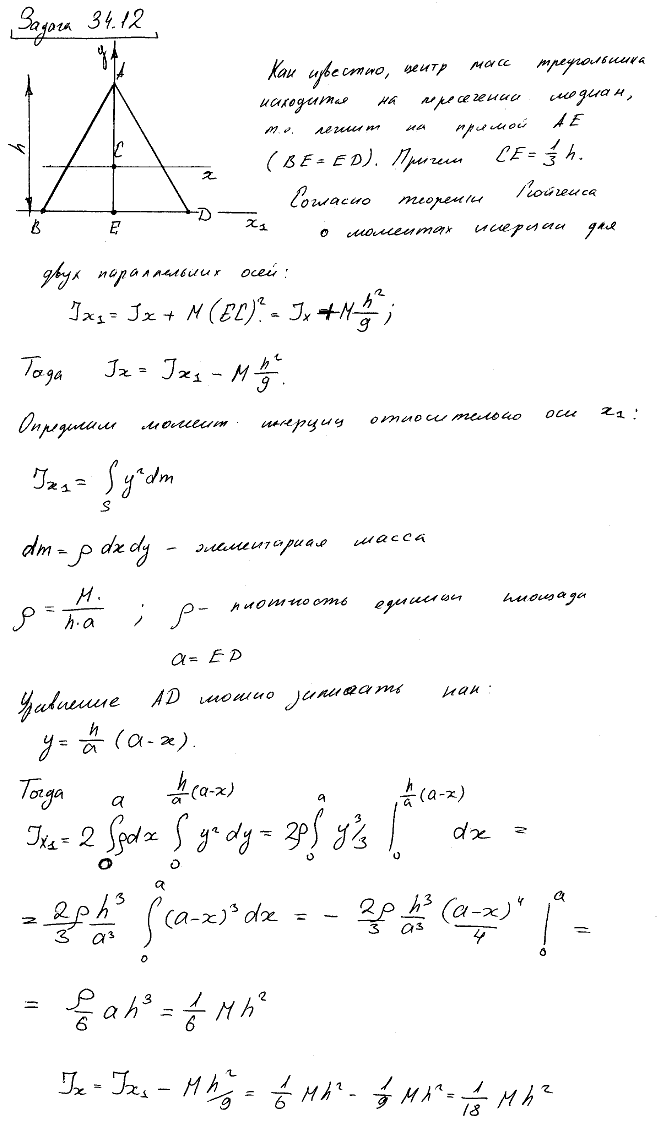 Задача 34.12
y
A
h
C
x
B E D x₁
Как известно, центр масс треугольника
находится на пересечении медиан,
т.е. лежит на прямой AE
(BE = ED). Причем CE = 1/3 h.
Согласно теореме Гюйгенса
о моментах инерции для
двух параллельных осей:
Jx₁ = Jx + M(EC)² = Jx + M h²/9;
Тогда Jx = Jx₁ - M h²/9.
Определим момент инерции относительно оси x₁:
Jx₁ = ∫_S y² dm
dm = ρ dx dy - элементарная масса
ρ = M/(h·a) ; ρ - плотность единицы площади
a = ED
Уравнение AD можно записать как:
y = h/a (a-x).
Тогда
Jx₁ = 2 ∫₀^a ρdx ∫₀^{h/a (a-x)} y² dy = 2ρ ∫₀^a y³/3 |₀^{h/a (a-x)} dx =
= 2ρ/3 h³/a³ ∫₀^a (a-x)³ dx = - 2ρ/3 h³/a³ (a-x)⁴/4 |₀^a =
= ρ/6 a h³ = 1/6 M h²
Jx = Jx₁ - M h²/9 = 1/6 M h² - 1/9 M h² = 1/18 M h²